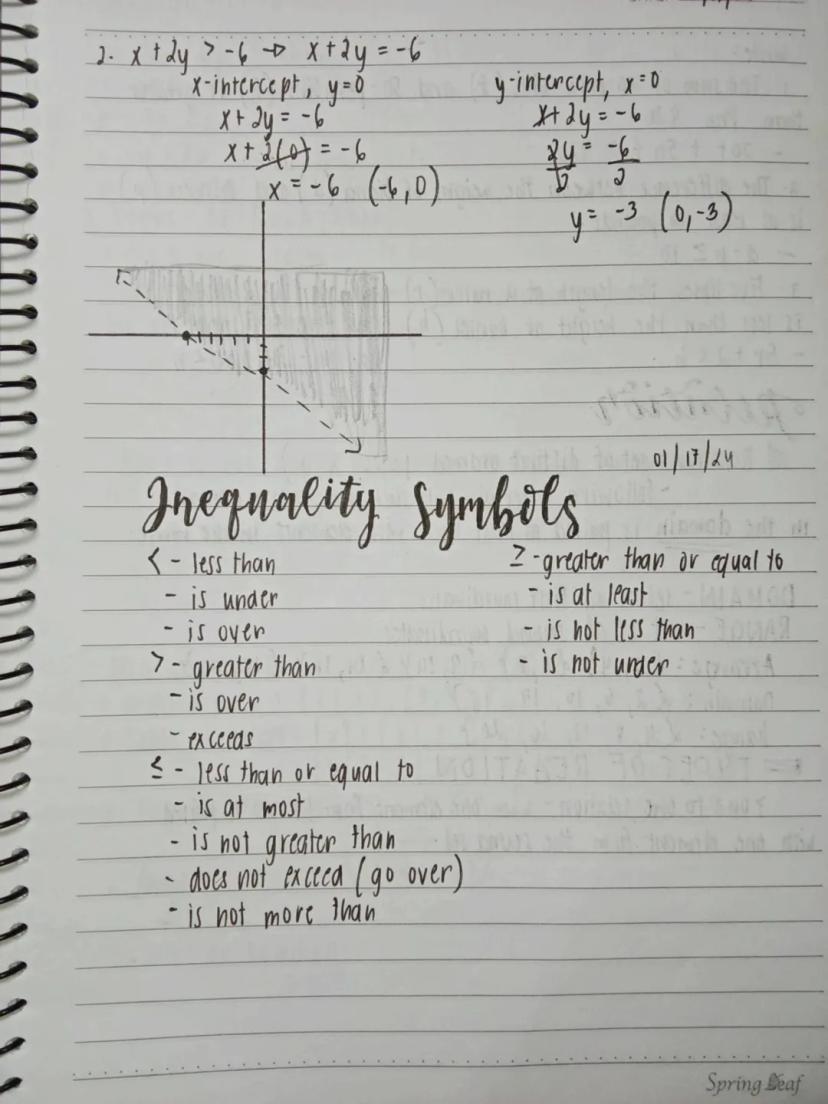 2. x + 2y > -6 → x + 2y = -6
x-intercept, y=0
x + 2y = -6
x + 2(0) = -6
x = -6 (-6, 0)
y-intercept, x=0
x + 2y = -6
2y = -6
2 2
y = -3 (0, -3)
01/17/24
Inequality Symbols
< - less than
- is under
- is over
> - greater than
- is over
- exceeds
≤ - less than or equal to
- is at most
- is not greater than
- does not exceed (go over)
- is not more than
≥ - greater than or equal to
- is at least
- is not less than
- is not under
Spring Leaf